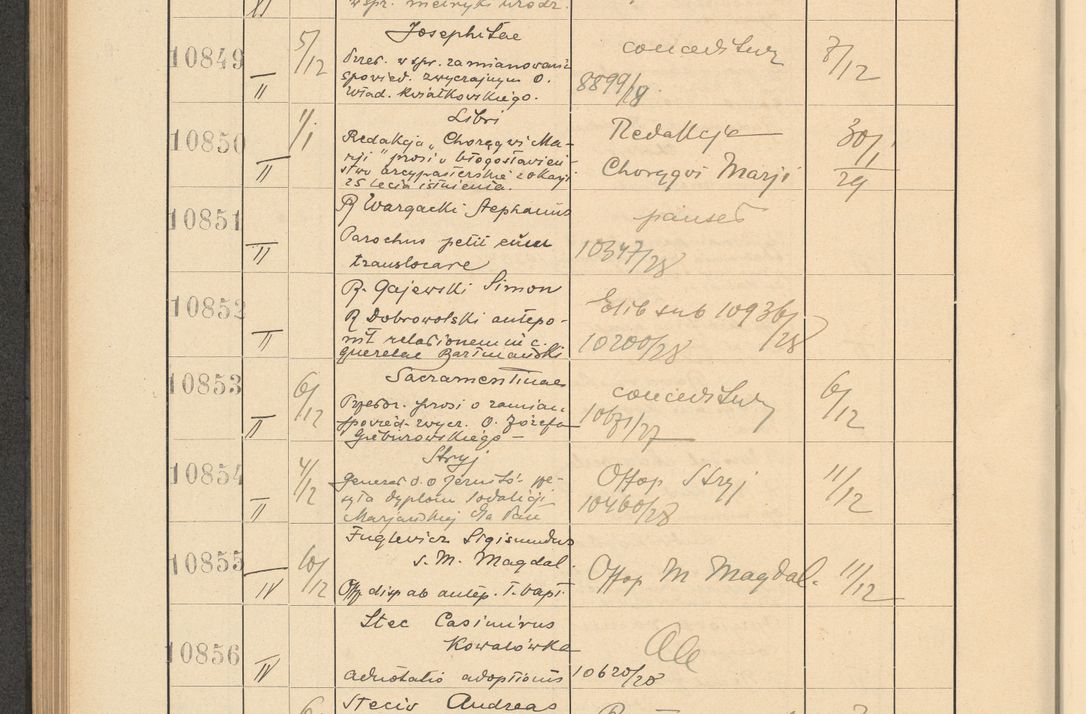 XI wspr. metryki urodz.
10849 II 5/12 Josephitae
Przeł. w spr. zamianowania
spowied. zwyczajnym O.
Wład. Kwiatkowskiego.
conceditur
8899/19
7/12
10850 II 1/1 Libri
Redakcja „Chorągwi Ma-
rji" prosi o błogosławień-
stwo arcypasterskie z okazji
25 lecia istnienia.
Redakcja
Chorągwi Marji
30/1
29
10851 II R Wargacki Stephanus
Parochus petit eum
translocare
10347/28
10852 II R. Gajewski Simon
R Dobrowolski antepo-
nit relationem in c.
querelae Bartmański
Elib sub 10936/28
10200/28
10853 II 6/12 Sacramentinae
Przeor. prosi o zamian.
spowied. zwycz. O. Józefa
conceditur
1071/27
6/12
10854 II 4/12 Stryj
syła dyplom Sodalicji
Marjańskiej dla Pań
Off op Stryj
10460/28
11/12
10855 IV 10/12 Fuglewicz Sigismundus
s. M. Magdal.
Off disp ab antep. T. bapt.
Off op M Magdal.
11/12
10856 IV Stec Casimirus
Kowalówka
adnotatio adoptionis
10620/28
Ale
Steciv Andreas